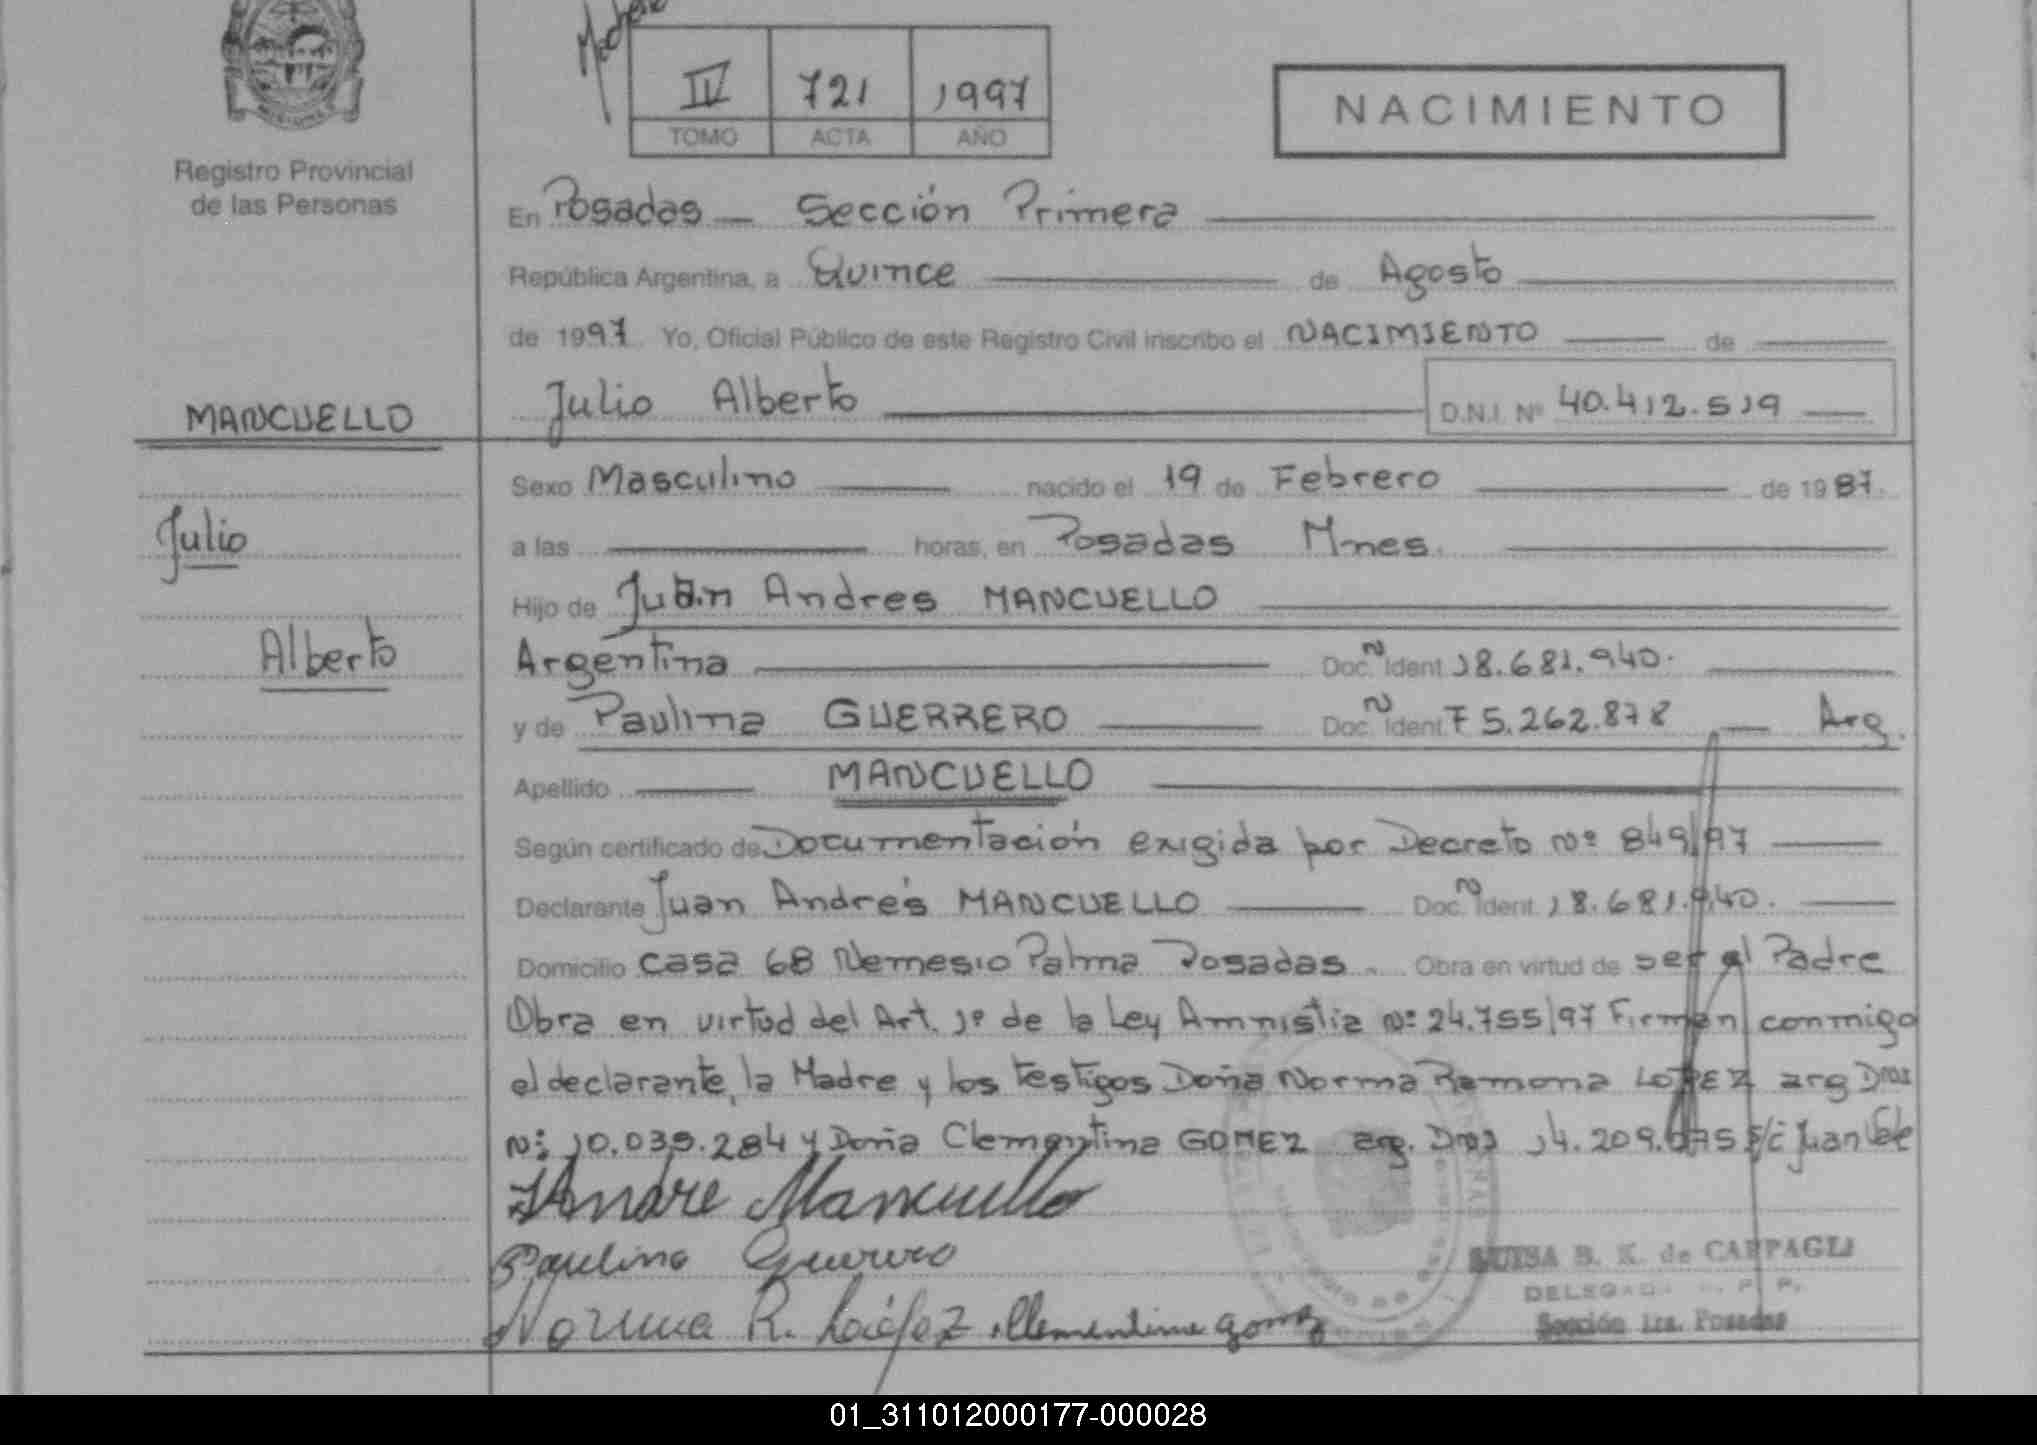 IV 721 1997
TOMO ACTA AÑO
NACIMIENTO
Registro Provincial
de las Personas
En Posadas Sección Primera
República Argentina, a Quince de Agosto
de 1997 Yo, Oficial Público de este Registro Civil inscribo el NACIMIENTO de
Julio Alberto D.N.I. Nº 40.412.519
MANCUELLO
Julio
Alberto
Sexo Masculino nacido el 19 de Febrero de 1987.
a las horas, en Posadas Mnes.
Hijo de Juan Andres MANCUELLO
Argentina Doc. Ident 18.681.940.
y de Paulina GUERRERO Doc. Ident F 5.262.878 Arg.
Apellido MANCUELLO
Según certificado de Documentación exigida por Decreto Nº 849/97
Declarante Juan Andrés MANCUELLO Doc. Ident. 18.681.940.
Domicilio casa 68 Nemesio Palma Posadas. Obra en virtud de ser el Padre
Obra en virtud del Art. 1º de la Ley Amnistia Nº 24.755/97 Firman conmigo
el declarante, la Madre y los testigos Doña Norma Ramona LOPEZ arg
Nº 10.039.284 y Doña Clementina GOMEZ arg. 14.209. Juan
Andre Mancuello
Paulina Guerrero
Norma R. López Clementina gomez
LUISA B. K. de CARPAGLI
Sección 1ra. Posadas
01_311012000177-000028